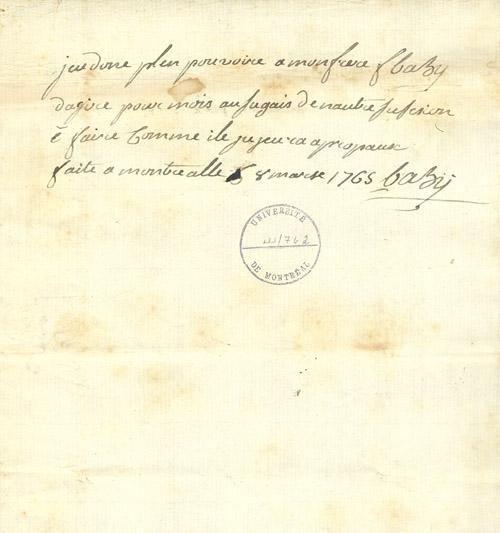 je done plen pouvoire a mon frere f baby
dagire pour mois au sugais de nautre susesion
é faire Comme ile jujeura apropaux
faite a montrealle le 8 marse 1765 baby
UNIVERSITÉ
DE MONTRÉAL